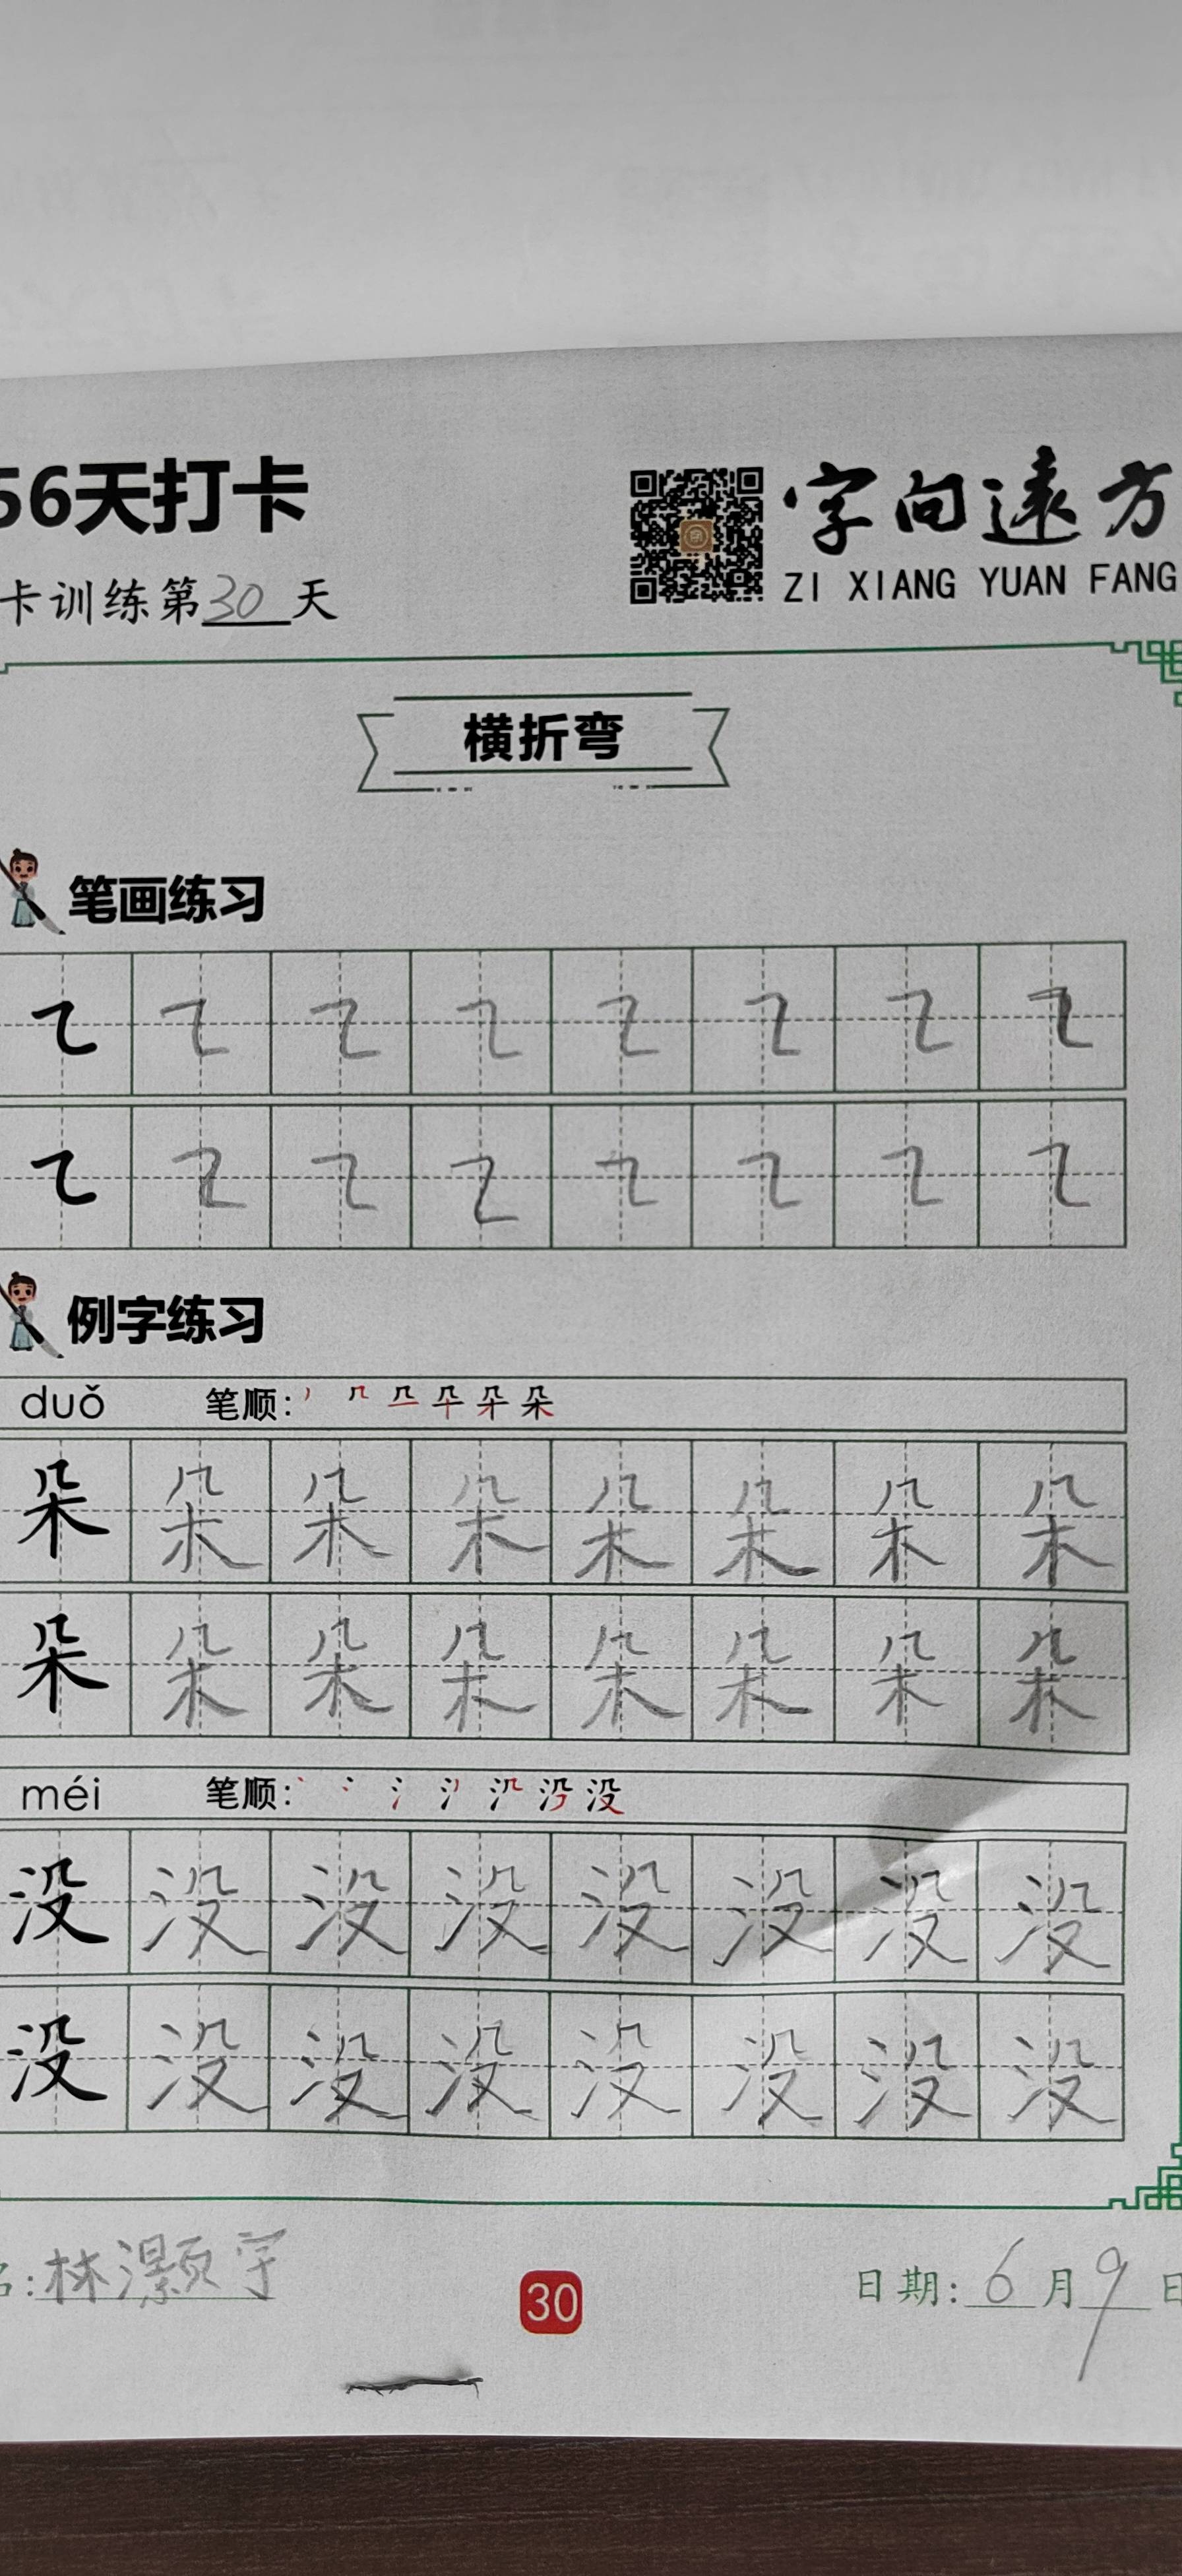 56天打卡
字向遠方
ZI XIANG YUAN FANG
卡训练第30天
横折弯
笔画练习
㇍ ㇍ ㇍ ㇍ ㇍ ㇍ ㇍ ㇍
㇍ ㇍ ㇍ ㇍ ㇍ ㇍ ㇍ ㇍
例字练习
duǒ 笔顺:
朵 朵 朵 朵 朵 朵 朵 朵
朵 朵 朵 朵 朵 朵 朵 朵
méi 笔顺:
没 没 没 没 没 没 没 没
没 没 没 没 没 没 没 没
名:林灏宇
30
日期:6月9日